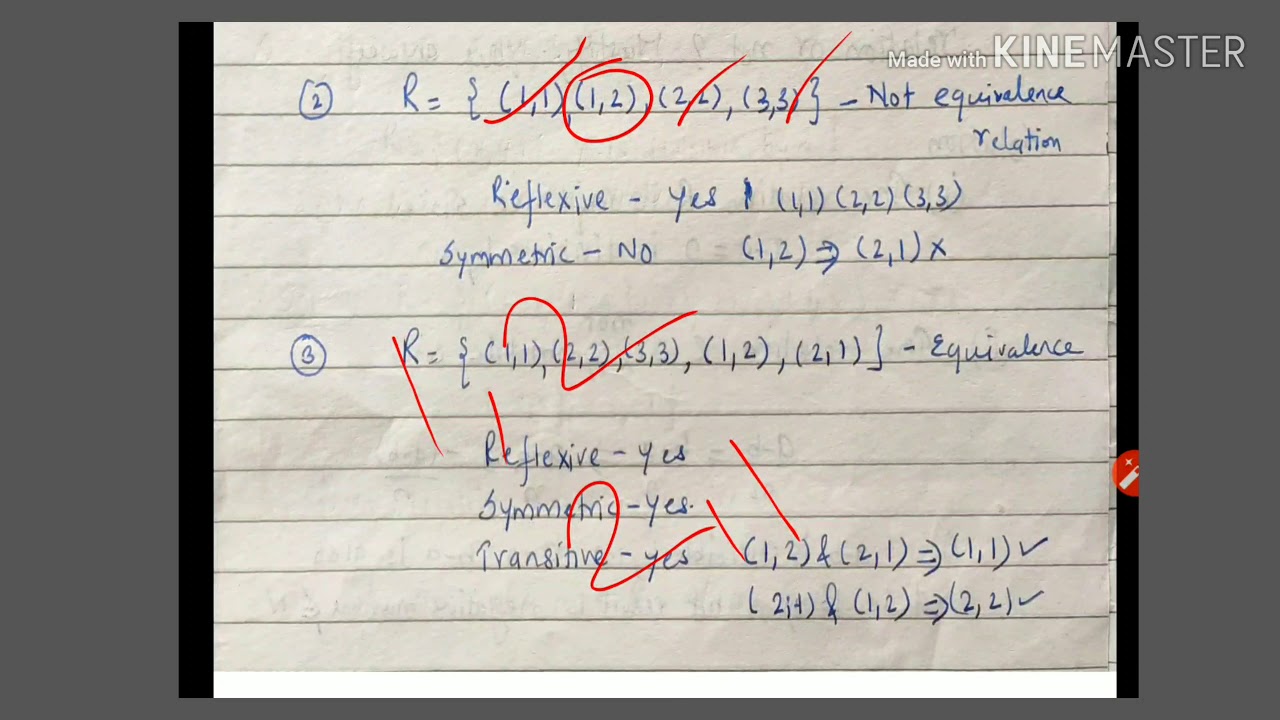 Made with KINEMASTER
② R = { (1,1), (1,2), (2,2), (3,3) } - Not equivalence
relation
Reflexive - Yes (1,1) (2,2) (3,3)
Symmetric - No (1,2) ⇒ (2,1) ×
③ R = { (1,1), (2,2), (3,3), (1,2), (2,1) } - Equivalence
Reflexive - Yes
Symmetric - Yes.
Transitive - yes (1,2) & (2,1) ⇒ (1,1) ✓
(2,1) & (1,2) ⇒ (2,2) ✓